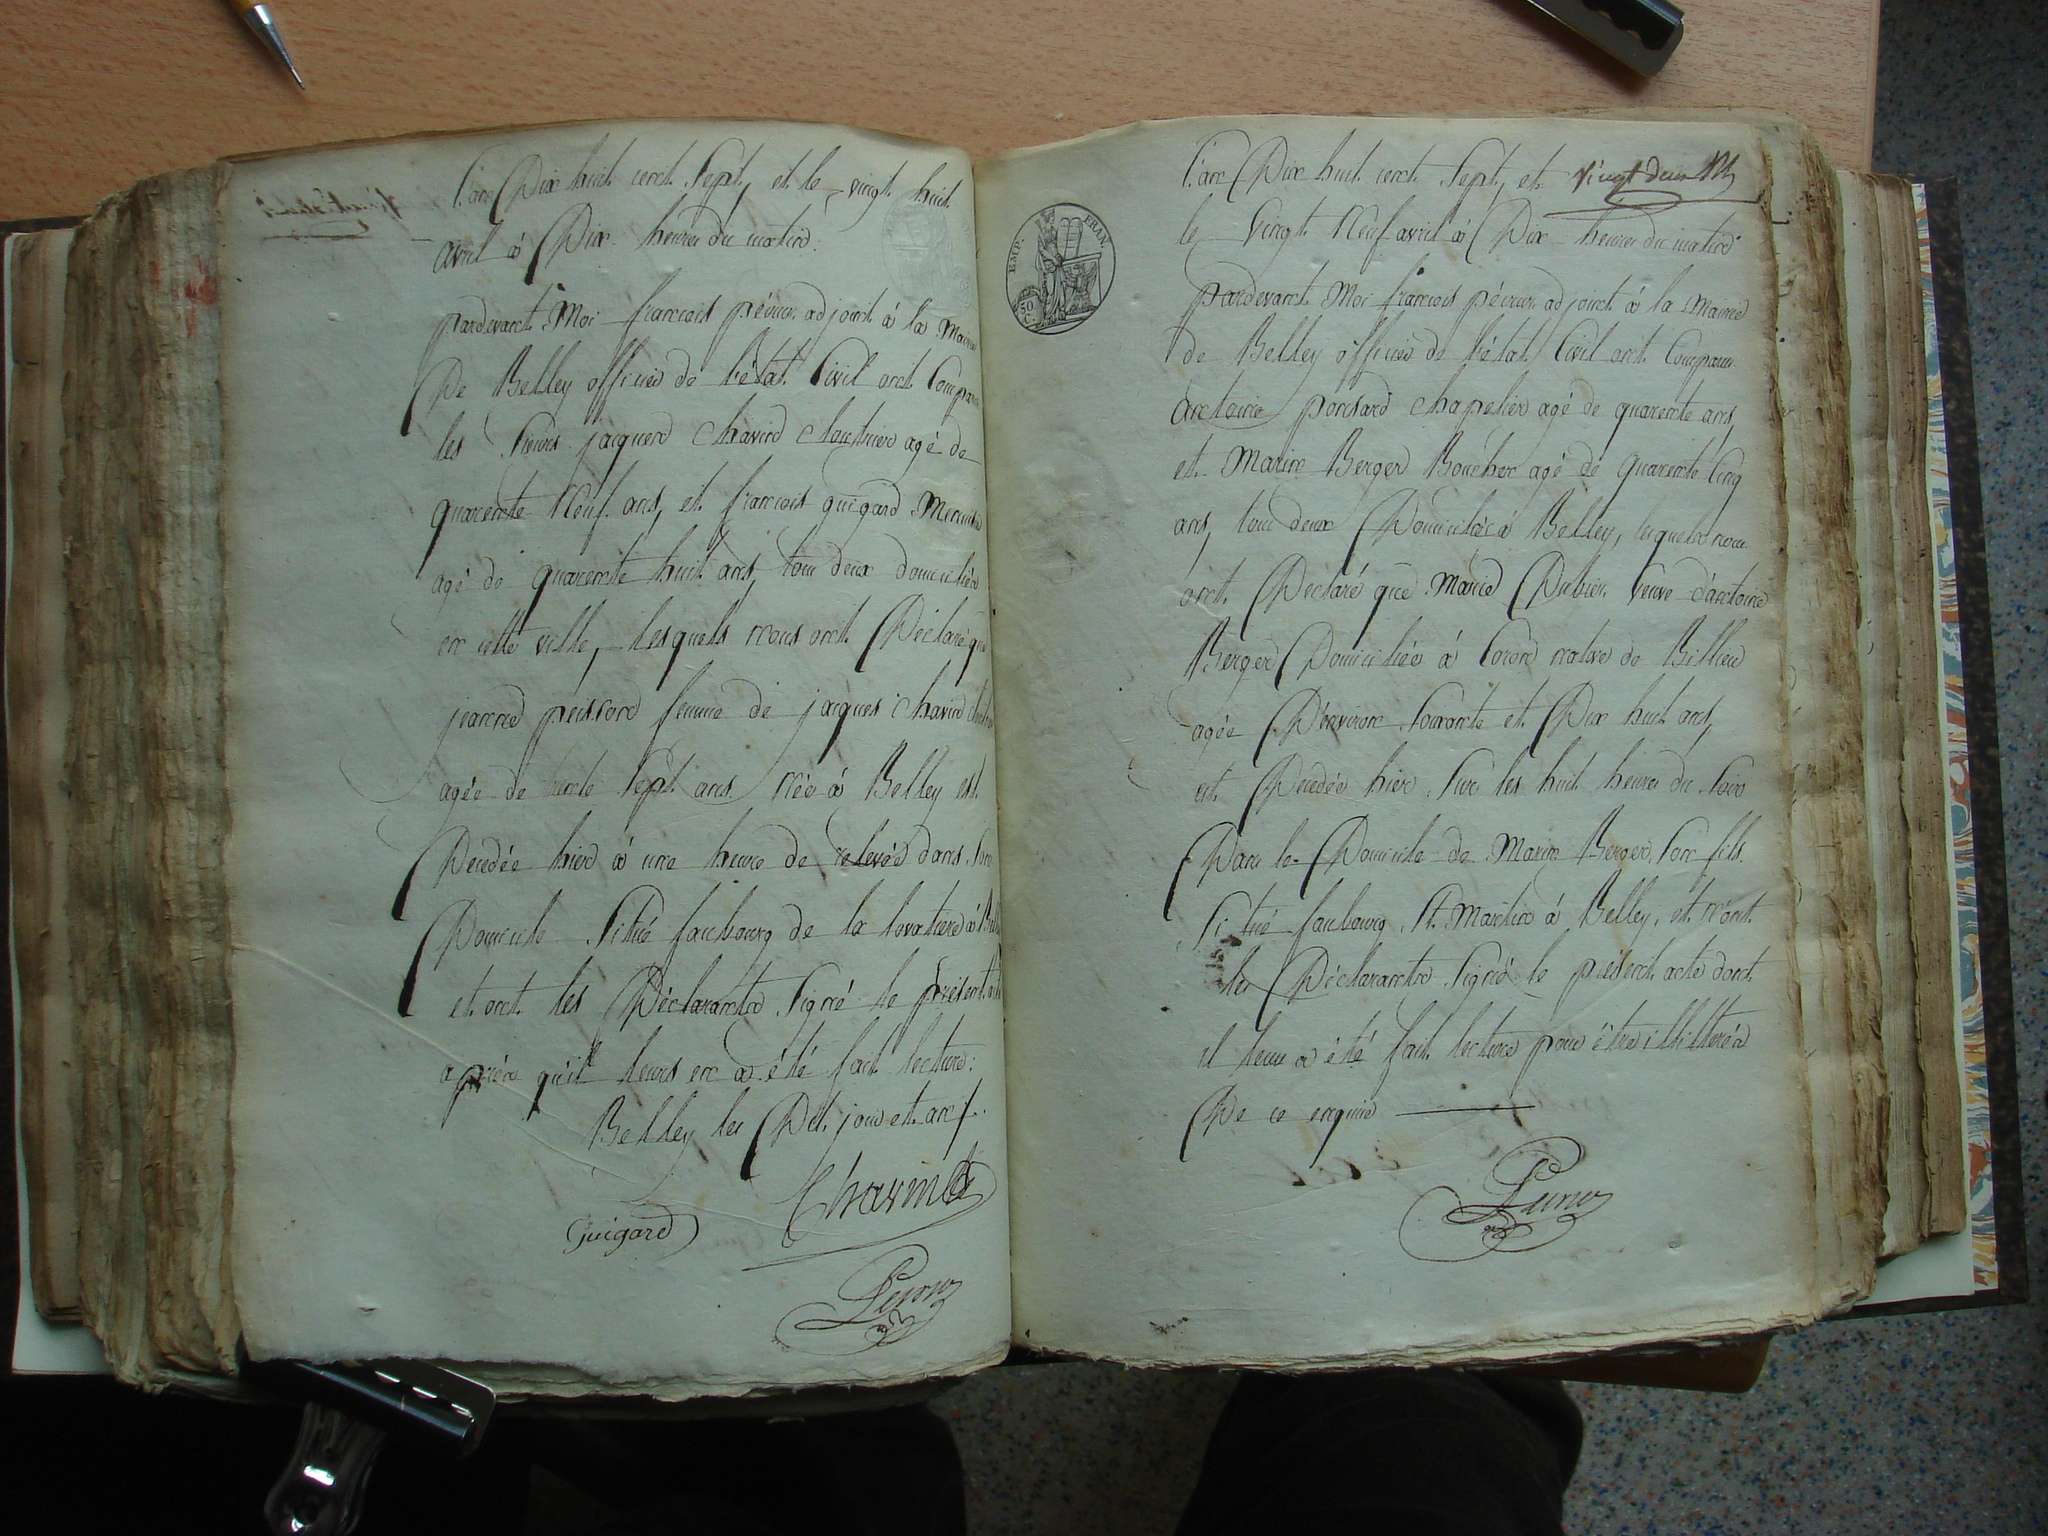 l'an Dix huit cent Sept, et le vingt huit
avril à Dix heures du matin.
pardevant Moi francois péronn adjoint à la Mairie
De Belley officier de l'état Civil ont Comparu
les Sieurs jacques Chavin cloutrier agé de
quarente Neuf ans, et francois guigard Menuisier
agé de quarente huit ans, tous deux domiciliés
en cette ville, lesquels nous ont Déclaré que
jeanne poisson femme de jacques Chavin
agée de trente Sept ans Née à Belley est
Décedée hier à une heure de relevée dans Son
Domicile Situé faubourg de la
et ont les Déclarants Signé le présent acte
après qu'il leurs en a été fait lecture:
Belley les Dit jour et an
Chavin
Guigard
EMP. FRAN.
50 C.
l'an Dix huit cent Sept, et vingt deux
le Vingt Neuf avril à Dix heures du matin
pardevant Moi francois adjoint à la Mairie
de Belley officier de l'état Civil ont Comparu
antoine ponsard chapelier agé de quarente ans,
et Marin Berger Boucher agé de quarente Cinq
ans, tous deux Domiciliés à Belley, lesquels nous
ont Déclaré que Marie Dubier Veuve d'antoine
Berger Domiciliée à Coron native de Billieu
agée D'environ Soixante et Dix huit ans,
est Décedée hier Sur les huit heures du Soir
Dans le Domicile de Marin Berger Son fils
Situé faubourg St. Martin à Belley, et n'ont
les Déclarants Signé le présent acte dont
il leur a été fait lecture pour être illitterés
De ce enquis